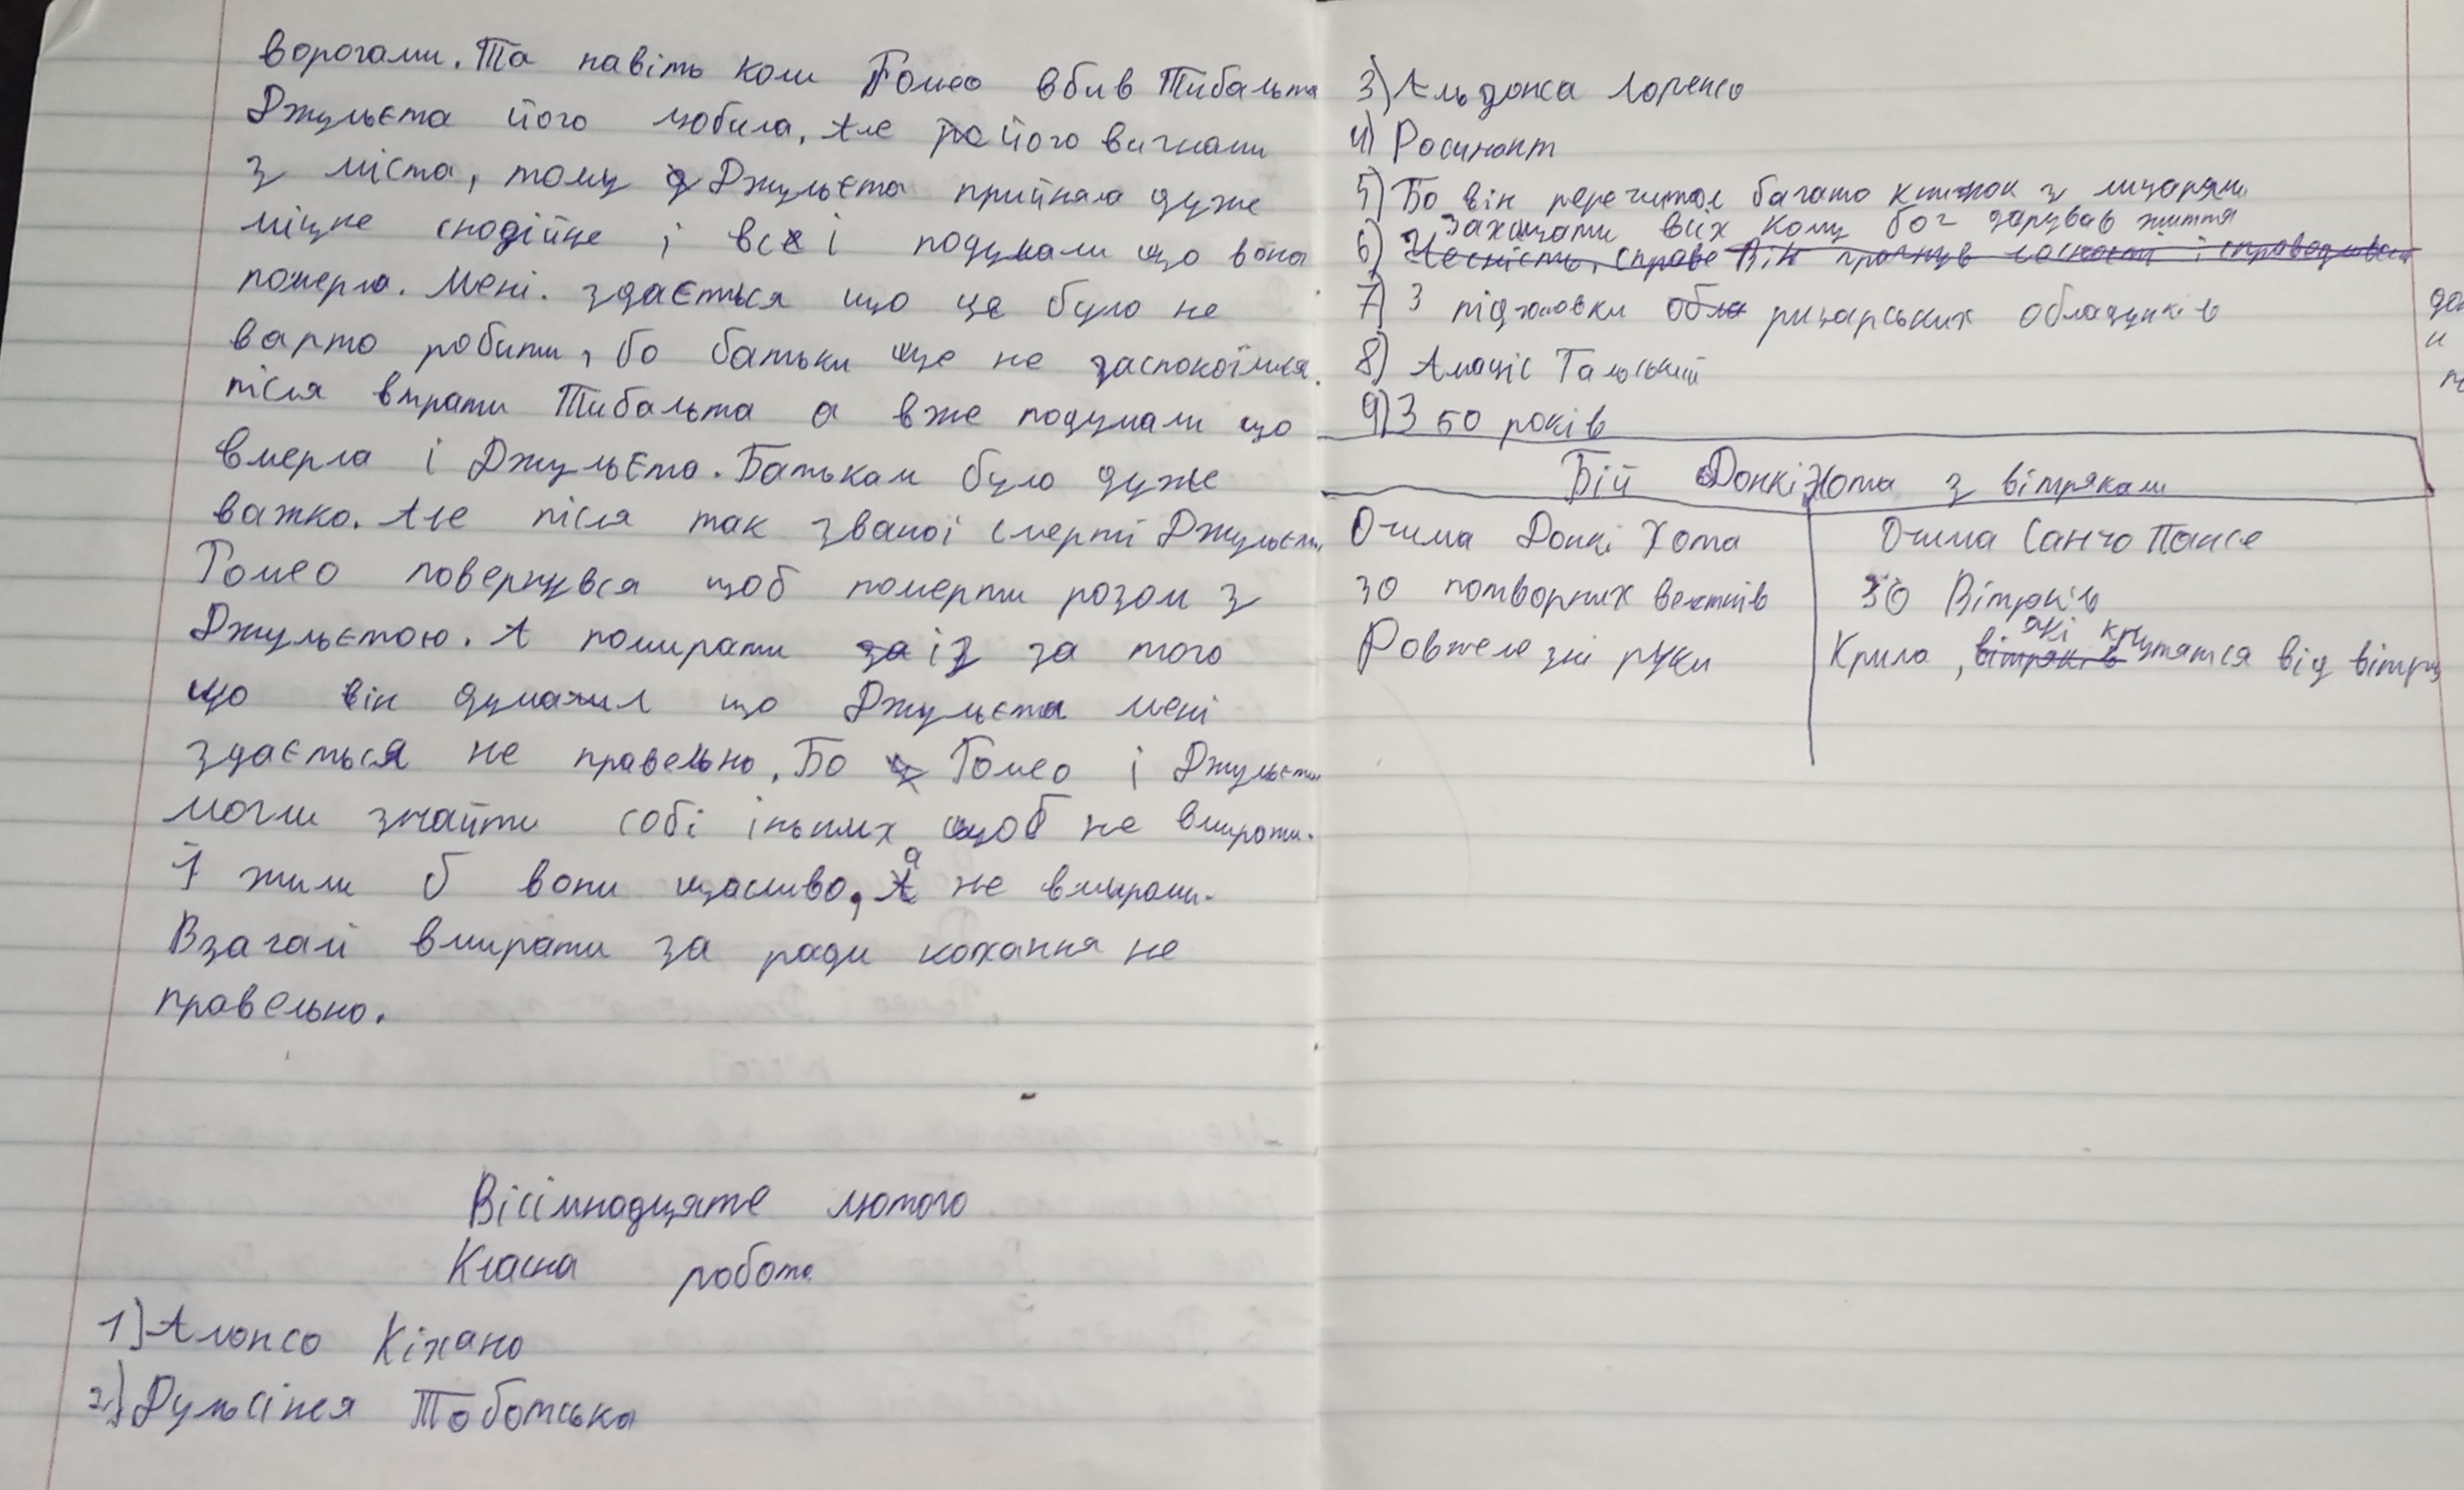 ворогами. Та навіть коли Ромео вбив Тибальта
Джульєта його любила. Але його вигнали
з міста, тому Джульєта прийняла дуже
міцне снодійне і всі подумали що вона
померла. Мені. здається що це було не
варто робити, бо батьки ще не заспокоїлися
після втрати Тибальта а вже подумали що
вмерла і Джульєта. Батькам було дуже
важко. Але після так званої смерті Джульєти
Ромео повернувся щоб померти разом з
Джульєтою. А помирати із за того
що він думал що Джульєта мені
здається не правельно. Бо Ромео і Джульєта
могли знайти собі іньших щоб не вмирати.
І жили б вони щасливо, а не вмирали.
Взагалі вмирати за ради кохання не
правельно.
Вісімнадцяте лютого
Класна робота
1) Алонсо Кіхано
2) Дульсінея Тобоська
3) Альдонса Лоренсо
4) Росинант
5) Бо він перечитал багато книжок з лицарями
6) Захищати всіх кому бог дарував життя
Чесність, справе Він прагнув чесности і справедливости
7) З підготовки обла рицарських обладунків
8) Амадіс Гальський
9) З 50 років
Бій ДонкіХота з вітряками
Очима Донкі Хота
30 потворних велетнів
Довжелезні руки
Очима Санчо Пансе
30 Вітряків
Крила, вітряків які крутятся від вітру